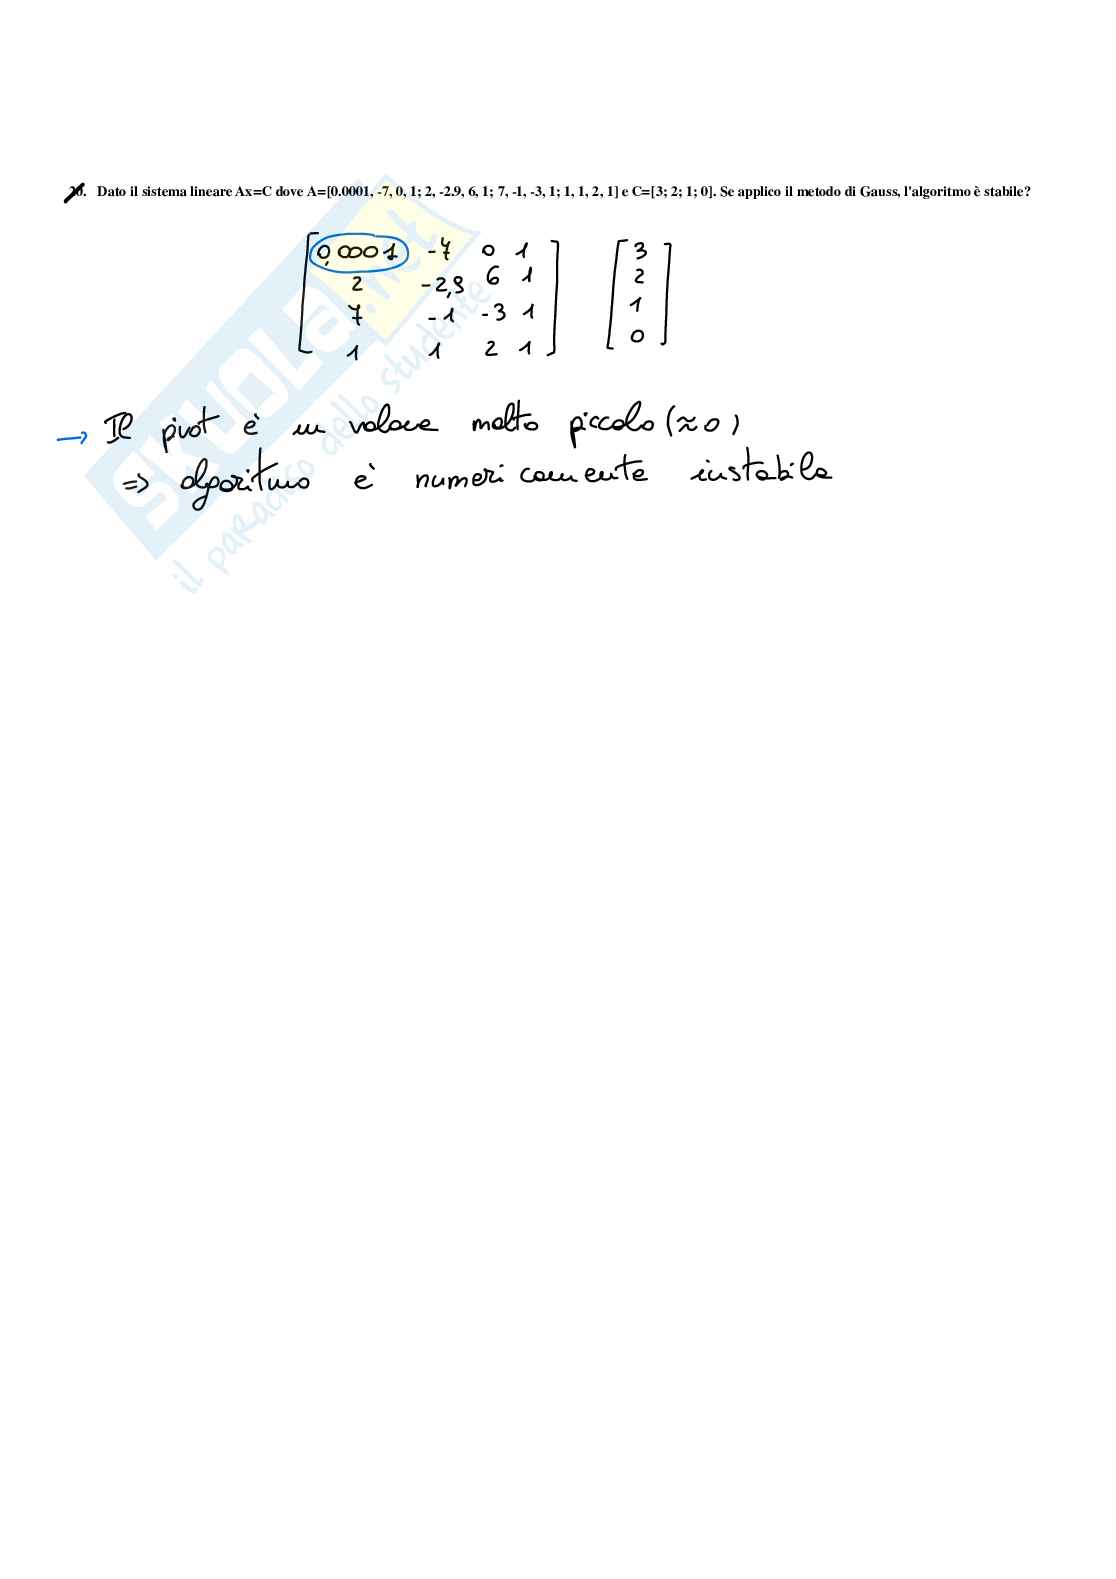 20. Dato il sistema lineare Ax=C dove A=[0.0001, -7, 0, 1; 2, -2.9, 6, 1; 7, -1, -3, 1; 1, 1, 2, 1] e C=[3; 2; 1; 0]. Se applico il metodo di Gauss, l'algoritmo è stabile?
0,0001 -7 0 1 3
2 -2,9 6 1 2
7 -1 -3 1 1
1 1 2 1 0
→ Il pivot è un valore molto piccolo (≈0)
⇒ algoritmo è numericamente instabile
SKUOLA.net
il paradiso dello studente